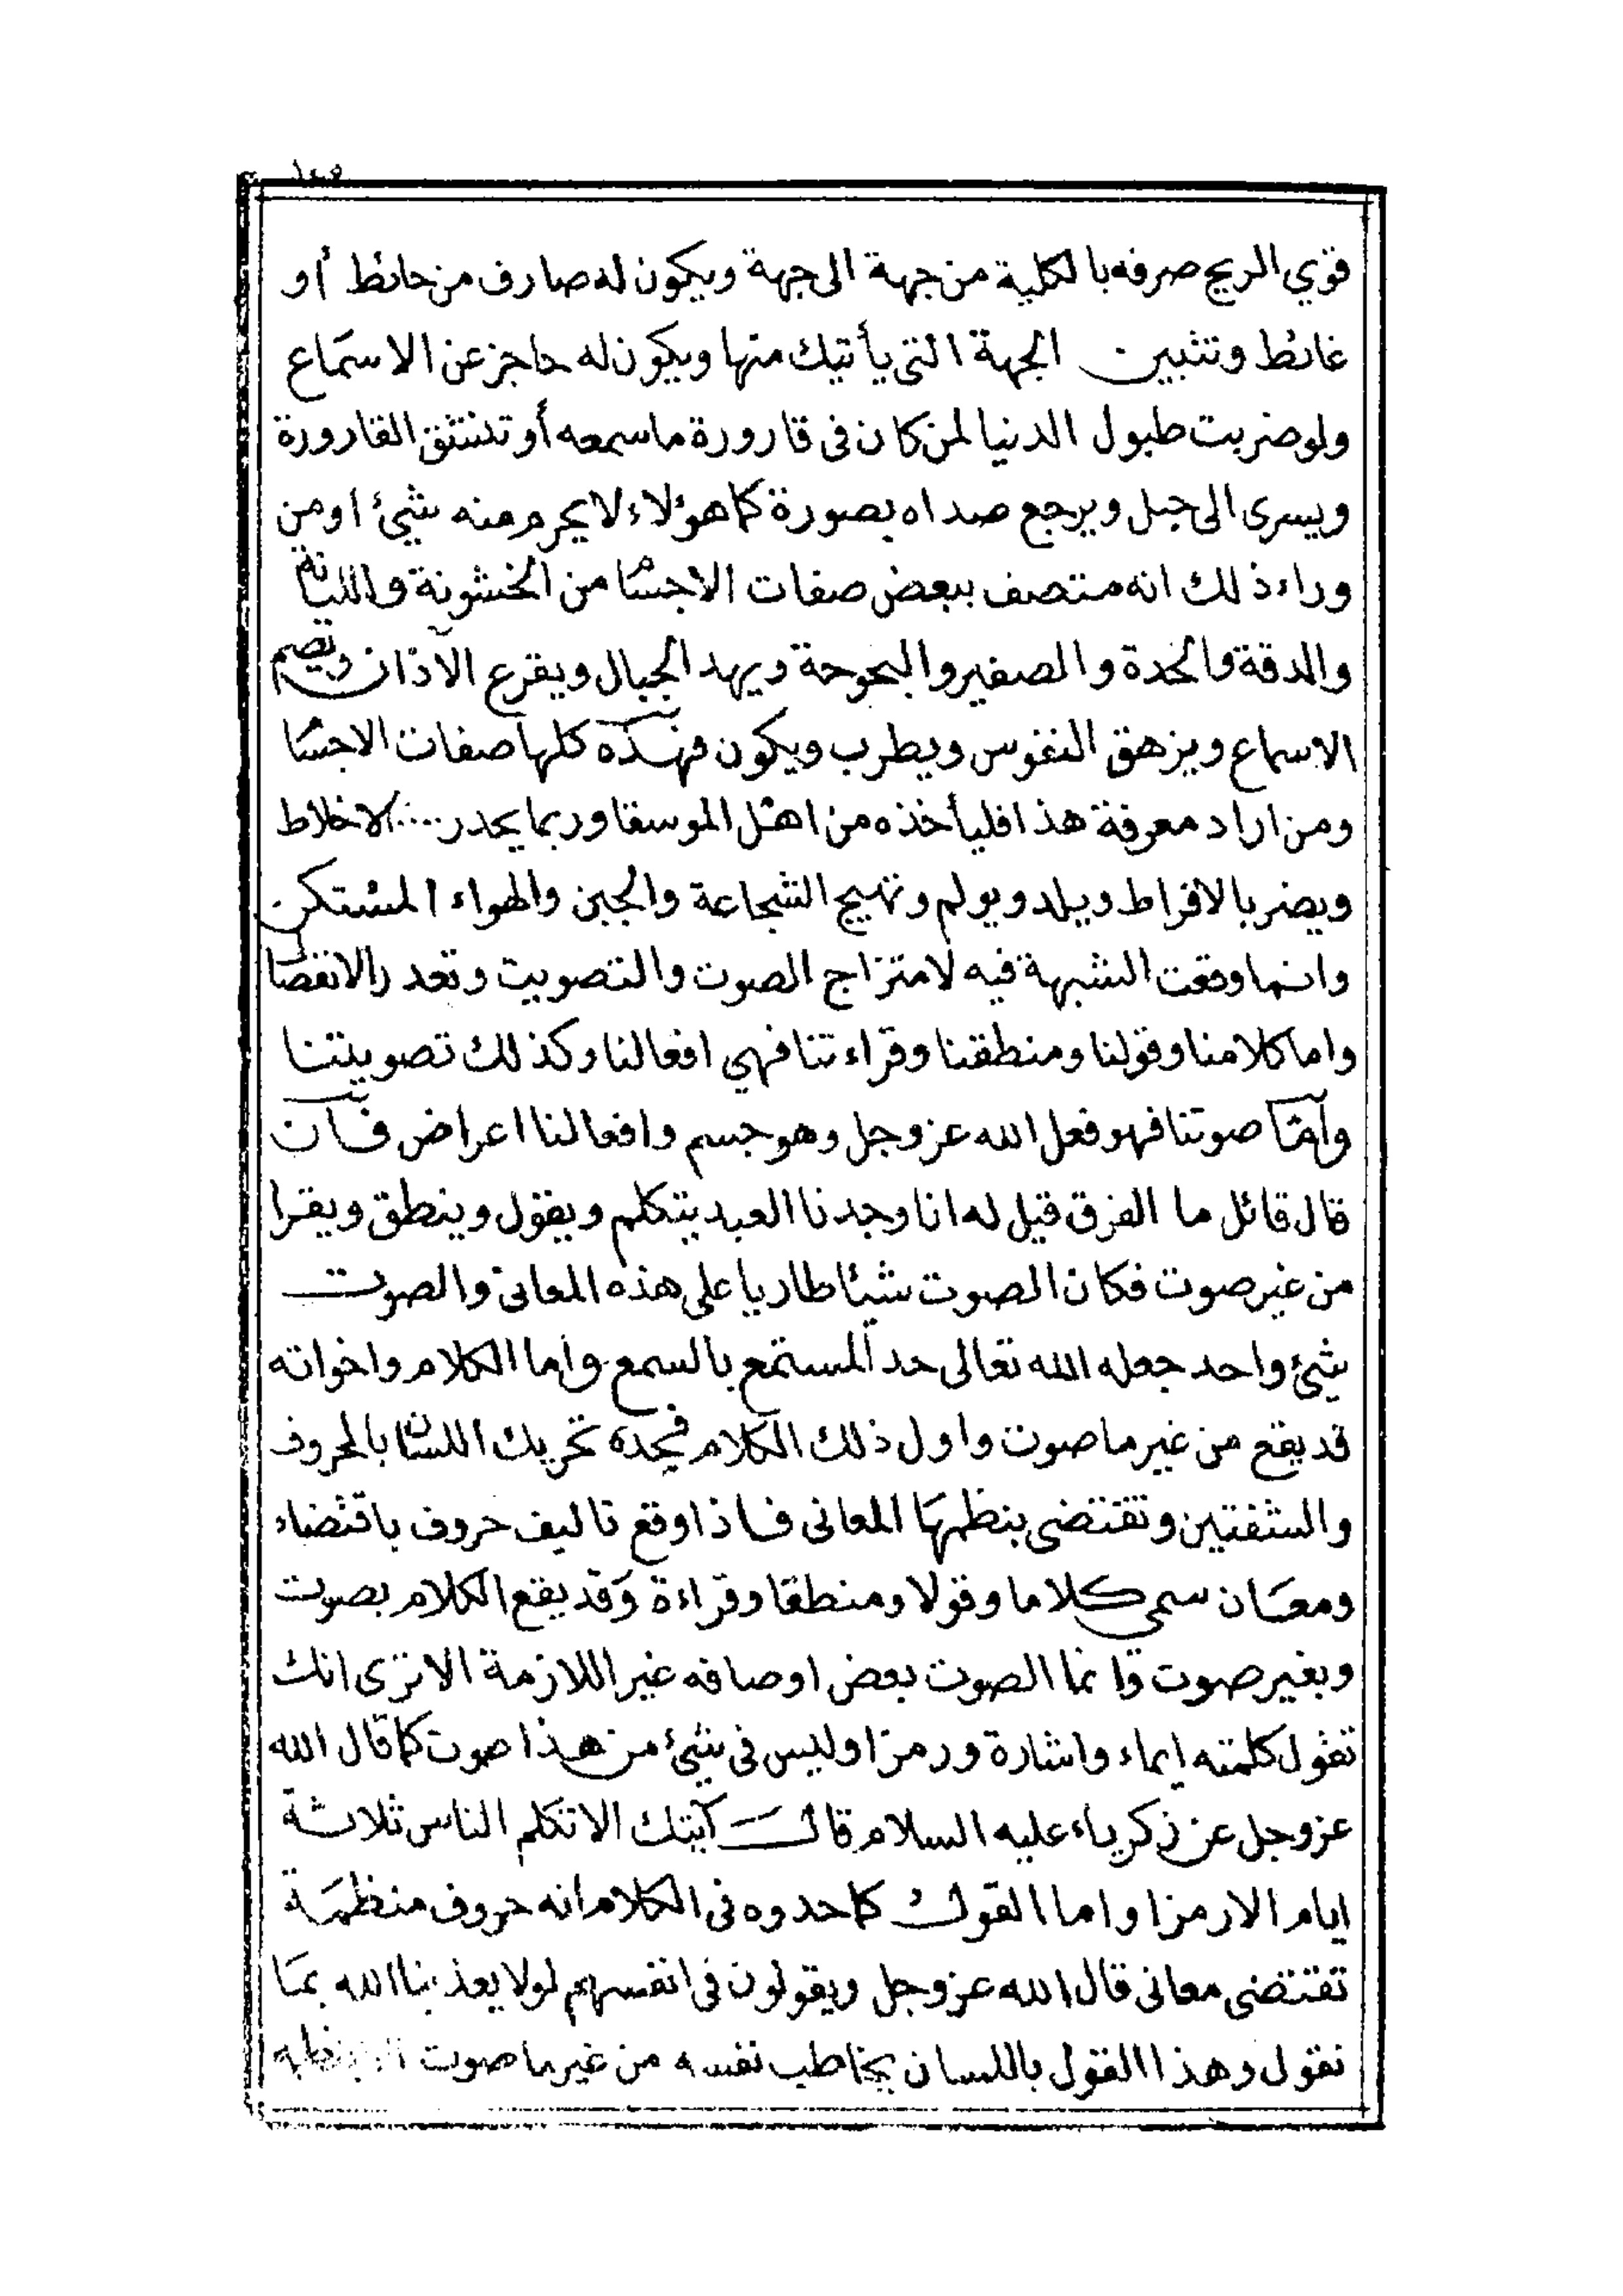 ١٤٥
قوي الريح صرفه بالكلية من جهة الى جهة ويكون له صارف من حائط أو
غائط وتتبين الجهة التى يأتيك منها ويكون له حاجز عن الاسماع
ولو ضربت طبول الدنيا لمن كان فى قارورة ما سمعه أو تنشق القارورة
ويسرى الى جبل ويرجع صداه بصورة كما هؤلاء لا يحرم منه شئ اومن
وراء ذلك انه متصف ببعض صفات الاجسام من الخشونة والليانة
والدقة والحدة والصفير والبحوحة ويهد الجبال ويقرع الآذان ويصم
الاسماع ويزهق النفوس ويطرب ويكون فهذه كلها صفات الاجسام
ومن اراد معرفة هذا فليأخذه من اهل الموسقا وربما يحدر .... الاخلاط
ويضر بالافراط ويبلد ويولم وتهيج الشجاعة والجبن والهواء المستكن
وانما وقعت الشبهة فيه لامتزاج الصوت والتصويت وتعدر الانفصال
واما كلامنا وقولنا ومنطقنا وقراءتنا فهي افعالنا وكذلك تصويتنا
وأما صوتنا فهو فعل الله عز وجل وهو جسم وافعالنا اعراض فان
قال قائل ما الفرق قيل له انا وجدنا العبد يتكلم ويقول وينطق ويقرا
من غير صوت فكان الصوت شيئا طاريا على هذه المعانى والصوت
شئ واحد جعله الله تعالى حد المستمع بالسمع واما الكلام واخواته
قد يقع من غير ما صوت واول ذلك الكلام فحده تحريك اللسان بالحروف
والشفتين وتقتضى بنظمها المعانى فاذا وقع تاليف حروف باقتضاء
ومعان سمى كلاما وقولا ومنطقا وقراءة وقد يقع الكلام بصوت
وبغير صوت وانما الصوت بعض اوصافه غير اللازمة الا ترى انك
تقول كلمته إيماء واشارة ورمزا وليس فى شئ من هذا صوت كما قال الله
عز وجل عن زكرياء عليه السلام قال آيتك الا تكلم الناس ثلاثة
ايام الا رمزا واما القول كما حدوه فى الكلام انه حروف منظمة
تقتضى معانى قال الله عز وجل ويقولون فى انفسهم لولا يعذبنا الله بما
نقول وهذا القول باللسان يخاطب نفسه من غير ما صوت